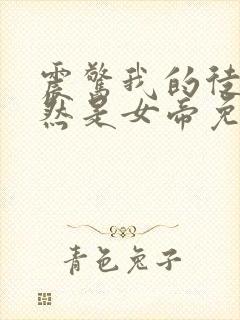 震惊我的徒
然是女帝免
青色兔子